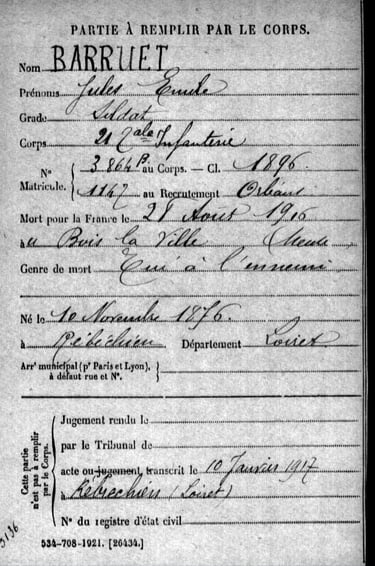 PARTIE À REMPLIR PAR LE CORPS.
Nom BARRUET
Prénoms Jules Emile
Grade Soldat
Corps Infanterie
N° Matricule. 3864 au Corps. — Cl. 1896
1147 au Recrutement Orléans
Mort pour la France le 28 Août 1916
à au Bois la Ville Meuse
Genre de mort Tué à l'ennemi
Né le 10 Novembre 1876.
à Rébréchien Département Loiret
Arrt municipal (pr Paris et Lyon),
à défaut rue et N°.
Cette partie n'est pas à remplir par le Corps.
Jugement rendu le
par le Tribunal de
acte ou jugement, transcrit le 10 Janvier 1917
à Rébréchien (Loiret)
N° du registre d'état civil
534-708-1921. [26434.]